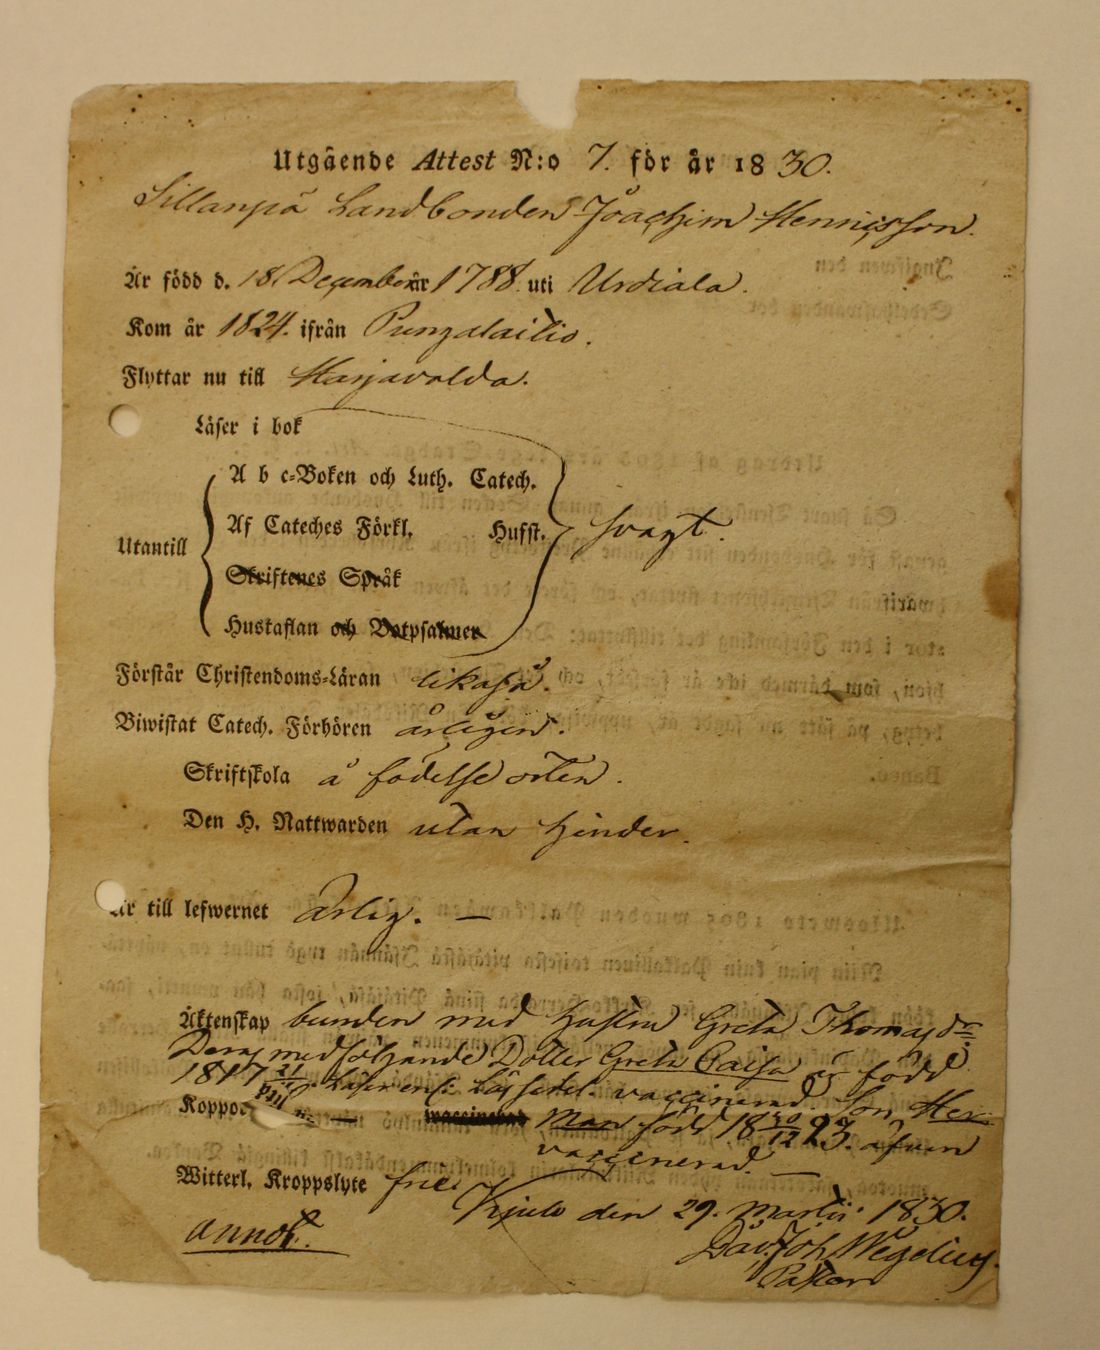 Utgående Attest N:o 7. för år 1830.
Sillanpä Landbonden Joachim Hennicsson.
Är född d. 18. December år 1788. uti Urdiala.
Kom år 1824. ifrån Pungalaitio.
Flyttar nu till Harjavalda.
Läser i bok
A b c-Boken och Luth. Catech.
Af Cateches Förkl. Husst. svagt.
Utantill
Skriftenes Språk
Hustaflan och Botpsalmer
Förstår Christendoms-Läran likaså.
Biwistat Catech. Förhören årligen.
Skriftskola å födelse orten.
Den H. Nattwarden utan hinder.
Är till lefwernet ärlig. —
Äktenskap bunden med hustru Greta Thomasdr
Deras medföljande Dotter Greta Caisa är född
1817 vaccinerad. Son Her-
Koppor vaccinerad man född 18 30/12 23. äfven
vaccinerad. —
Witterl. Kroppslyte fri.
Kjulo den 29. Martii 1830.
annot. Dav. Joh. Wegelius.
Pastor